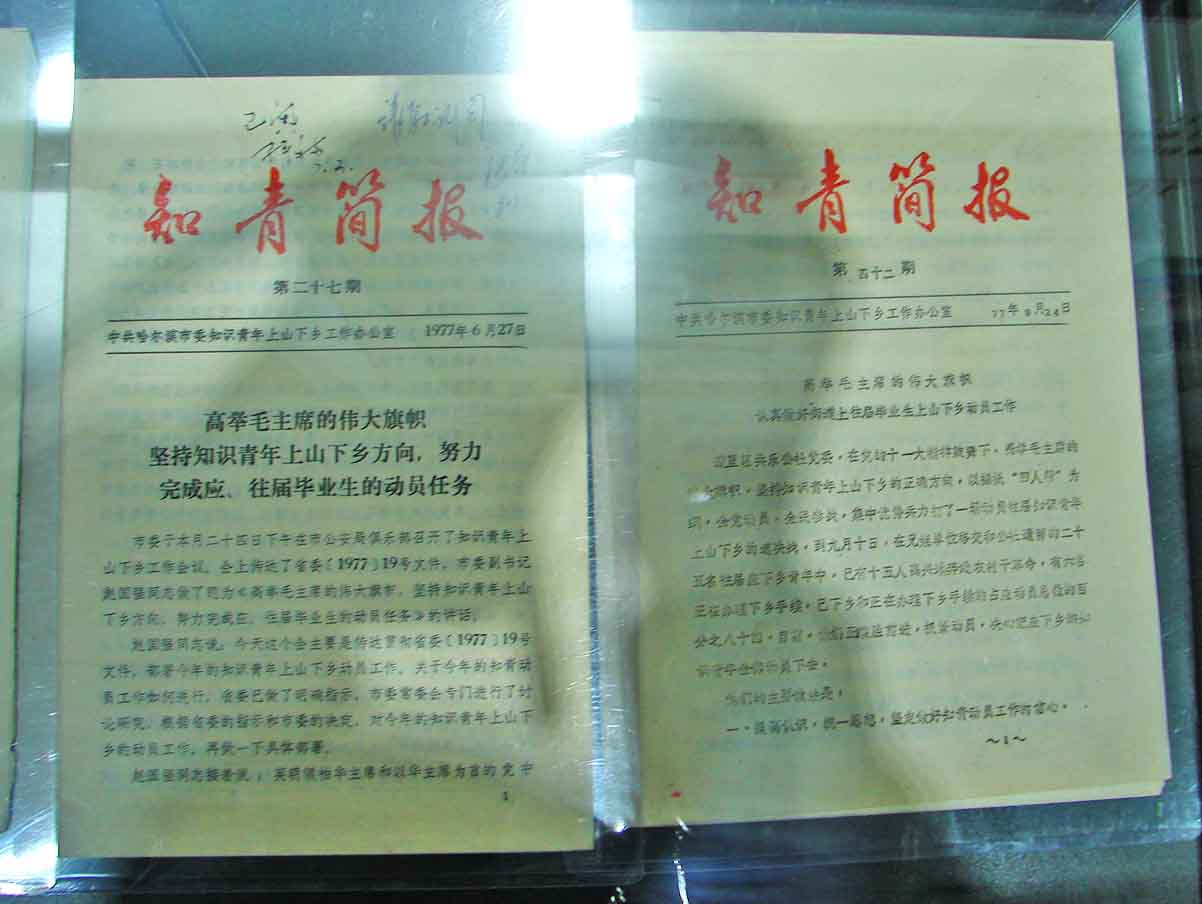 已阅
知青简报
第二十七期
中共哈尔滨市委知识青年上山下乡工作办公室 1977年6月27日
高举毛主席的伟大旗帜
坚持知识青年上山下乡方向，努力
完成应、往届毕业生的动员任务
市委于本月二十四日下午在市公安局俱乐部召开了知识青年上
山下乡工作会议。会上传达了省委〔1977〕19号文件。市委副书记
赵国强同志做了题为《高举毛主席的伟大旗帜，坚持知识青年上山
下乡方向，努力完成应、往届毕业生的动员任务》的讲话。
赵国强同志说：今天这个会主要是传达贯彻省委〔1977〕19号
文件，部署今年的知识青年上山下乡动员工作。关于今年的知青动
员工作如何进行，省委已做了明确指示，市委常委会专门进行了讨
论研究。根据省委的指示和市委的决定，对今年的知识青年上山下
乡的动员工作，再做一下具体部署。
赵国强同志接着说：英明领袖华主席和以华主席为首的党中
1
知青简报
第四十二期
中共哈尔滨市委知识青年上山下乡工作办公室 77年9月24日
高举毛主席的伟大旗帜
认真做好街道上往届毕业生上山下乡动员工作
道里区共乐公社党委，在党的十一大精神鼓舞下，高举毛主席的
伟大旗帜，坚持知识青年上山下乡的正确方向，以揭批“四人帮”为
纲，全党动员，全民参战，集中优势兵力打了一场动员往届知识青年
上山下乡的速决战，到九月十日，在又继单位移交和公社遗留的二十
五名往届应下乡青年中，已有十五人高兴地奔赴农村干革命，有六名
正在办理下乡手续，已下乡和正在办理下乡手续的占应动员总数的百
分之八十四。目前，他们正乘胜前进，抓紧动员，决心把应下乡的知
识青年全部动员下去。
他们的主要做法是：
一、提高认识，统一思想，坚定做好知青动员工作的信心。
～1～